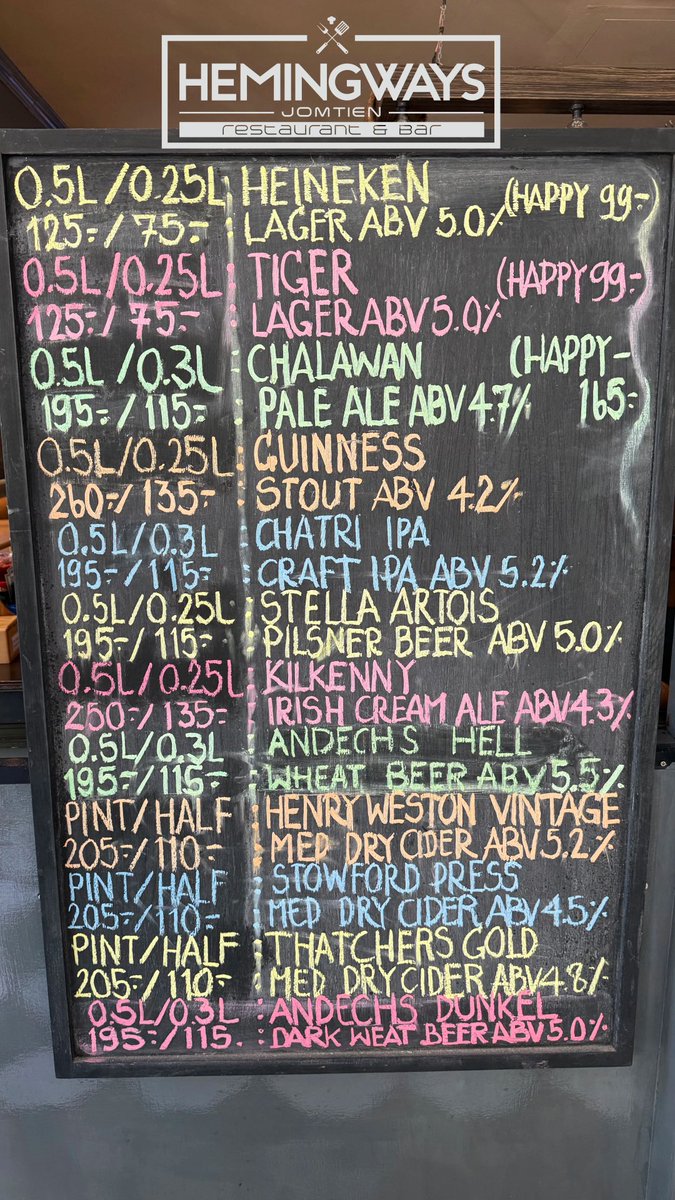 HEMINGWAYS
JOMTIEN
restaurant & bar
0.5L/0.25L : HEINEKEN (HAPPY 99-
125-/75- : LAGER ABV 5.0%
0.5L/0.25L : TIGER (HAPPY 99-
125-/75- : LAGER ABV 5.0%
0.5L/0.3L : CHALAWAN (HAPPY-
195-/115- : PALE ALE ABV 4.7% 165-
0.5L/0.25L : GUINNESS
260-/135- : STOUT ABV 4.2%
0.5L/0.3L : CHATRI IPA
195-/115- : CRAFT IPA ABV 5.2%
0.5L/0.25L : STELLA ARTOIS
195-/115- : PILSNER BEER ABV 5.0%
0.5L/0.25L : KILKENNY
250-/135- : IRISH CREAM ALE ABV 4.3%
0.5L/0.3L : ANDECHS HELL
195-/115- : WHEAT BEER ABV 5.5%
PINT/HALF : HENRY WESTON VINTAGE
205-/110- : MED DRY CIDER ABV 5.2%
PINT/HALF : STOWFORD PRESS
205-/110- : MED DRY CIDER ABV 4.5%
PINT/HALF : THATCHERS GOLD
205-/110- : MED DRY CIDER ABV 4.8%
0.5L/0.3L : ANDECHS DUNKEL
195-/115. : DARK WEAT BEER ABV 5.0%